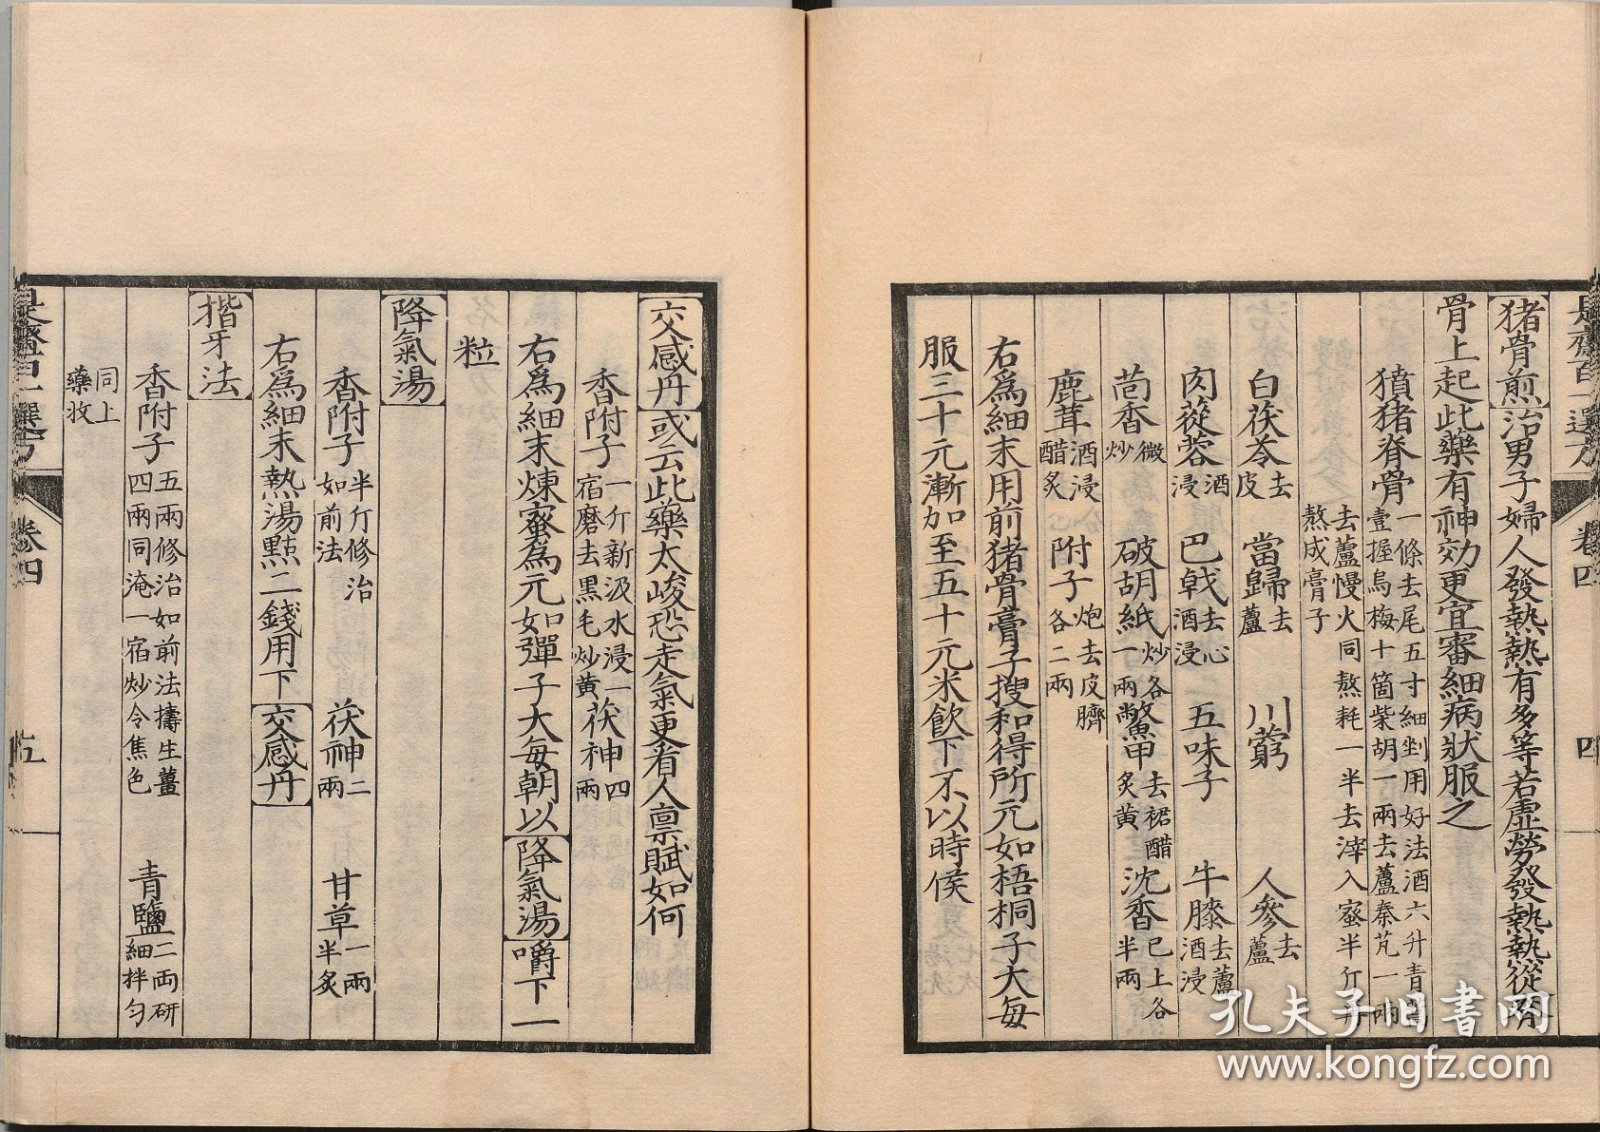 是齋百一選方 卷四 四
猪骨煎 治男子婦人發熱熱有多等若虛勞發熱熱從
骨上起此藥有神効更宜審細病狀服之
獖猪脊骨一條去尾五寸細剉用好法酒六升青
壹握烏梅十箇柴胡一兩去蘆秦艽一兩
去蘆慢火同熬耗一半去滓入蜜半斤再
熬成膏子
白茯苓去皮 當歸去蘆 川芎 人參去蘆
肉蓯蓉酒浸 巴戟去心酒浸 五味子 牛膝去蘆酒浸
茴香微炒 破胡紙炒各一兩 鱉甲去裙醋炙黄 沈香已上各半兩
鹿茸酒浸醋炙 附子炮去皮臍各二兩
右為細末用前猪骨膏子搜和得所元如梧桐子大每
服三十元漸加至五十元米飲下不以時候
交感丹 或云此藥太峻恐走氣更看人禀賦如何
香附子一斤新汲水浸一宿磨去黑毛炒黄 茯神四兩
右為細末煉蜜為元如彈子大每朝以降氣湯嚼下一
粒
降氣湯
香附子半斤修治如前法 茯神二兩 甘草一兩半炙
右為細末熱湯點二錢用下交感丹
揩牙法
香附子五兩修治如前法擣生薑四兩同淹一宿炒令焦色 青鹽二兩研細拌匀
同上藥收
是齋百一選方 卷四 五
孔夫子旧书网
www.kongfz.com